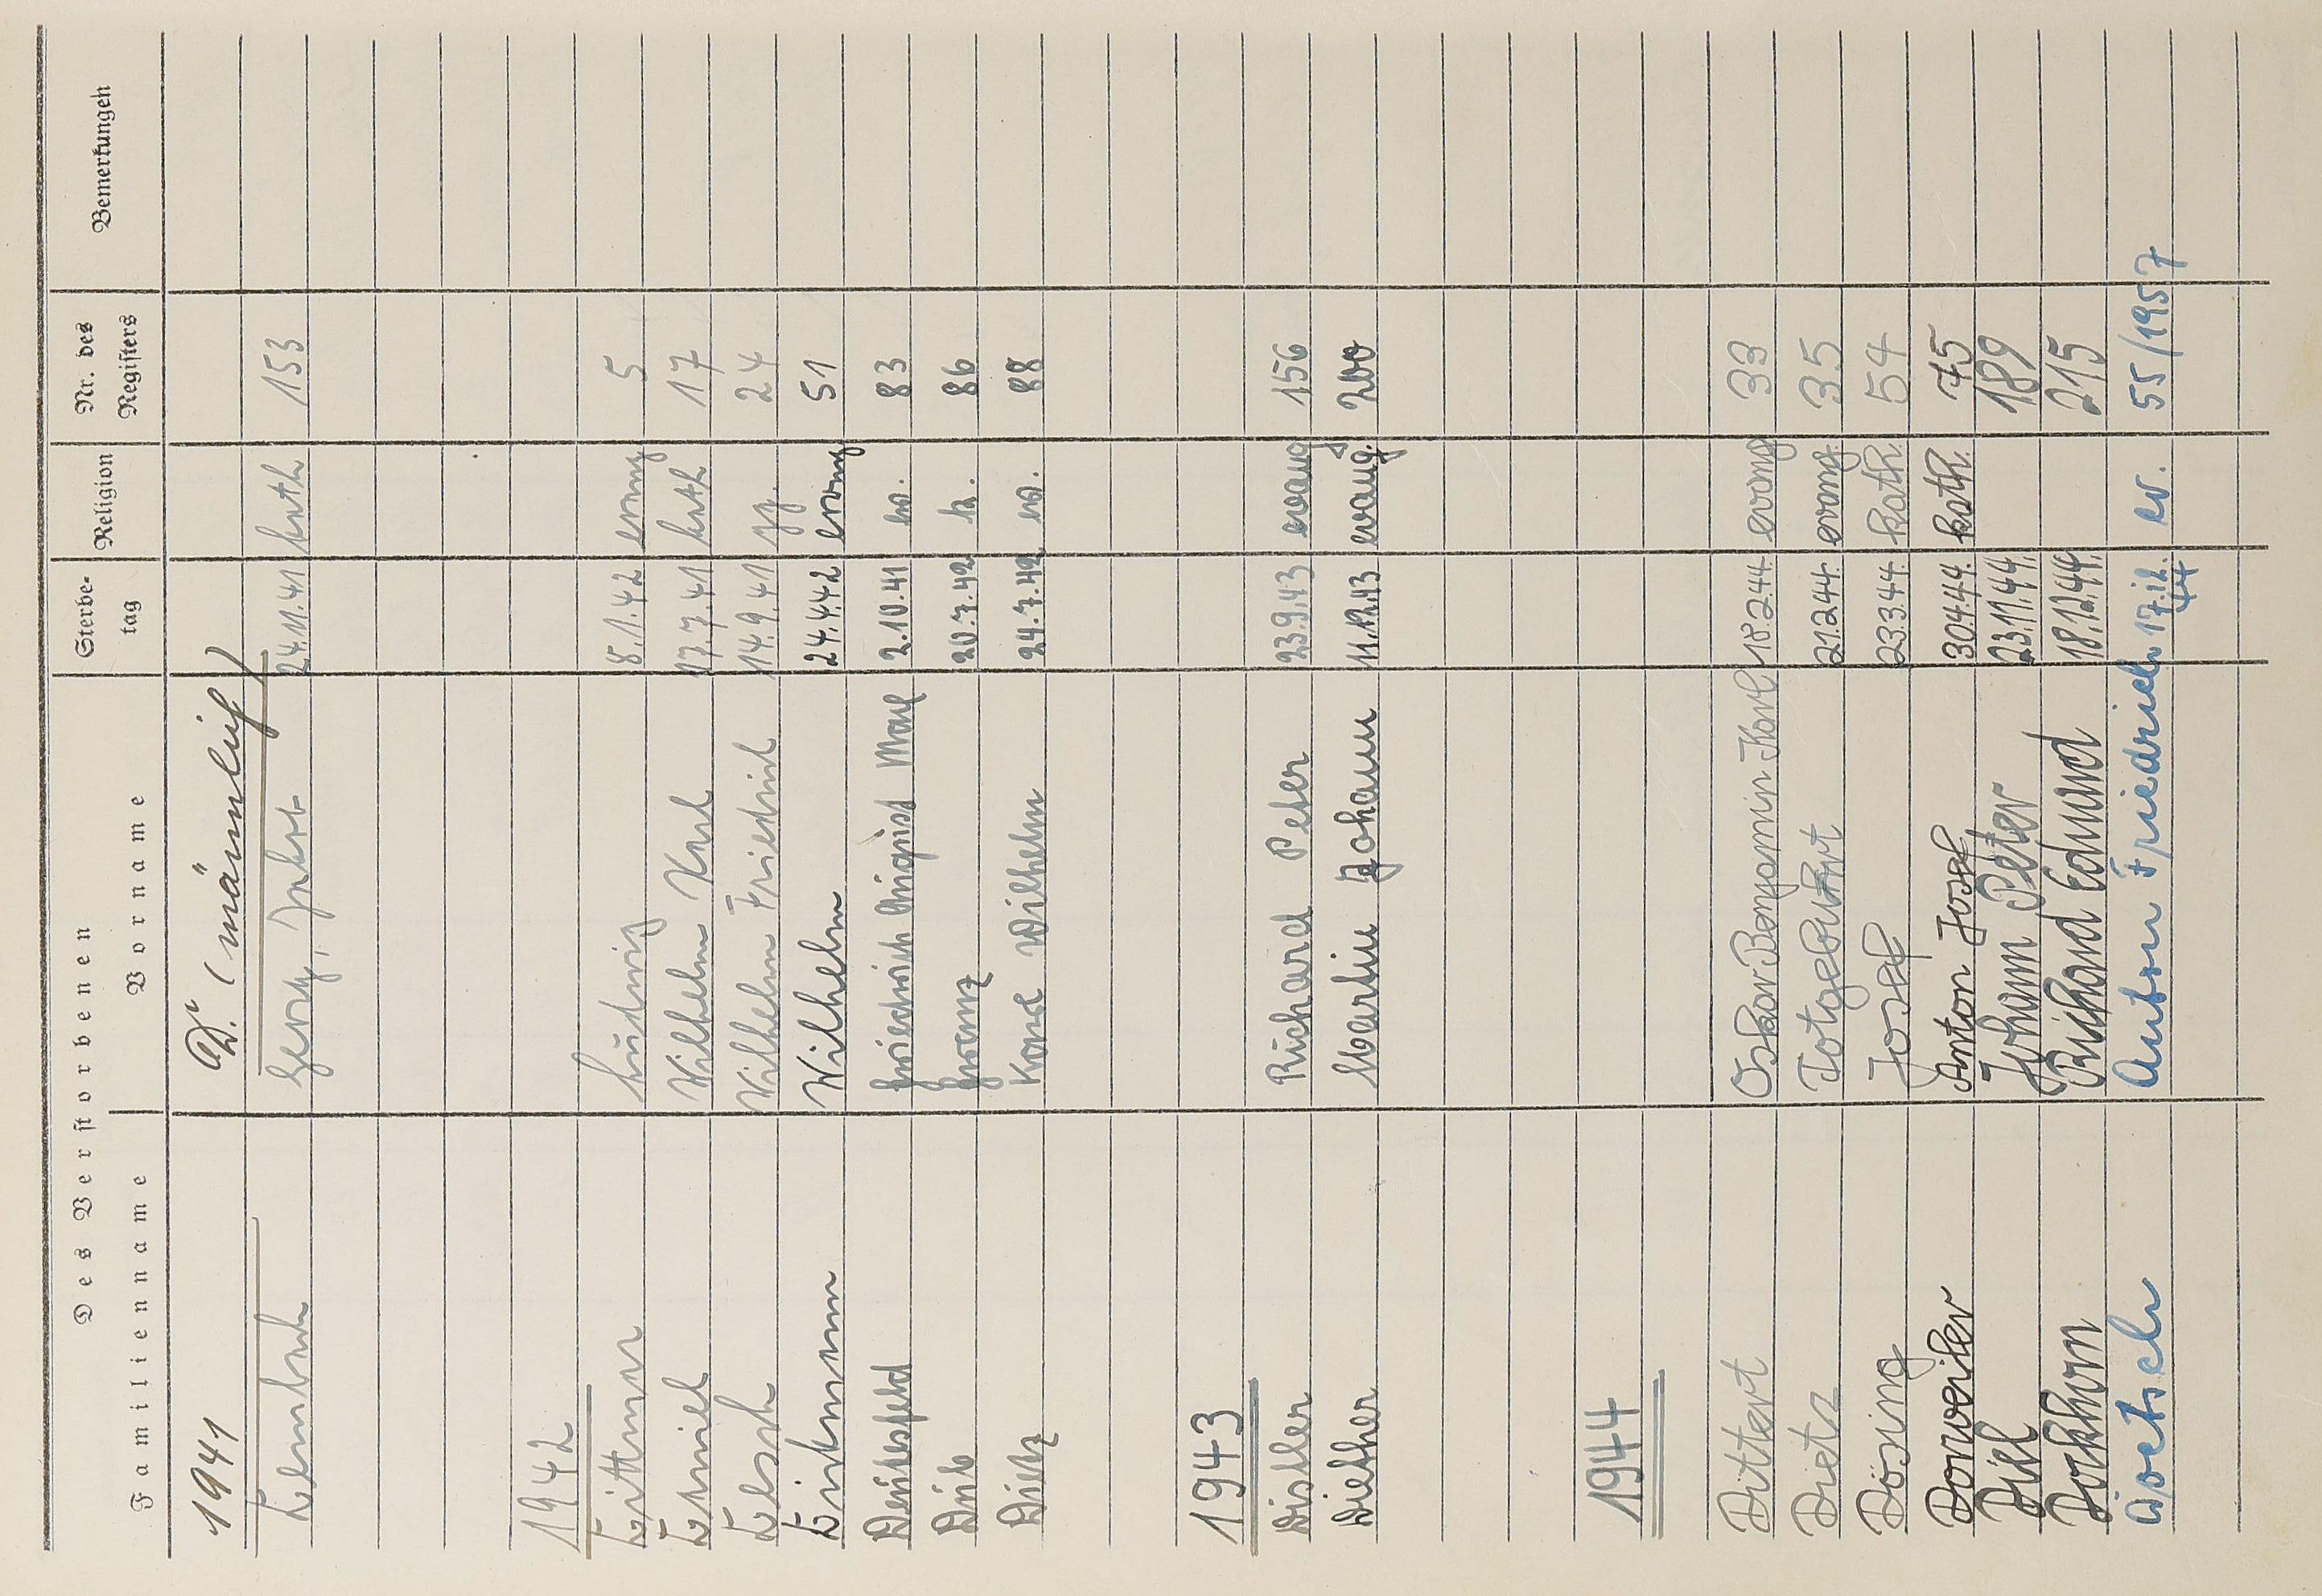 Des Verstorbenen
Familienname Vorname Sterbetag Religion Nr. des Registers Bemerkungen
1941 D. (männlich)
Georg, Jakob 24.11.41 kath 153
1942
Dittmar Ludwig 8.1.42 evang 5
Daniel Wilhelm Karl 17.7.41 kath 17
Wilhelm Friedrich 14.9.41 gg. 24
Dickmann Wilhelm 24.4.42 evang 51
Deutesfeld Friedrich August Karl 2.10.41 ev. 83
Dub Franz 20.7.42 k. 86
Dietz Konr Wilhelm 24.7.42 ev. 88
1943
Disller Richard Peter 23.9.43 evang 156
Diether Martin Johann 11.12.43 evang. 200
1944
Dittert Oskar Benjamin Karl 18.2.44. evang 33
Dietz Totgeburt 21.2.44. evang. 35
Dösing Josef 23.3.44. kath. 54
Dorweiler Anton Josef 30.4.44. kath. 75
Diel Johann Peter 23.11.44. 189
Dockhorn Richard Eduard 18.12.44. 215
Doetsch Anton Friedrich 17.12.44 ev. 55/1957